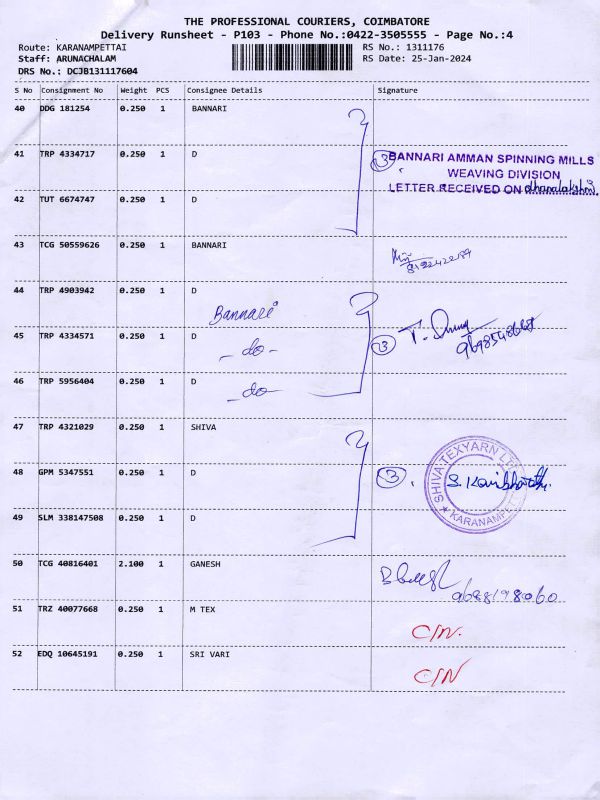 THE PROFESSIONAL COURIERS, COIMBATORE
Delivery Runsheet - P103 - Phone No.:0422-3505555 - Page No.:4
Route: KARANAMPETTAI RS No.: 1311176
Staff: ARUNACHALAM RS Date: 25-Jan-2024
DRS No.: DCJB131117604
S No Consignment No Weight PCS Consignee Details Signature
40 DDG 181254 0.250 1 BANNARI
41 TRP 4334717 0.250 1 D
3 BANNARI AMMAN SPINNING MILLS
WEAVING DIVISION
LETTER RECEIVED ON dhanalakshmi.
42 TUT 6674747 0.250 1 D
43 TCG 50559626 0.250 1 BANNARI
44 TRP 4903942 0.250 1 D
Bannari
45 TRP 4334571 0.250 1 D
-do- 3
46 TRP 5956404 0.250 1 D
-do-
47 TRP 4321029 0.250 1 SHIVA
48 GPM 5347551 0.250 1 D
3 SHIVA TEXYARN LTD
KARANAMPETT
49 SLM 338147508 0.250 1 D
50 TCG 40816401 2.100 1 GANESH
9688198060
51 TRZ 40077668 0.250 1 M TEX
C/N.
52 EDQ 10645191 0.250 1 SRI VARI
C/N